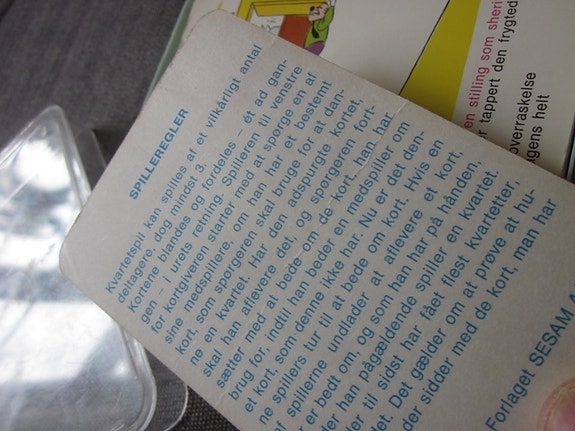 SPILLEREGLER
Kvartetspil kan spilles af et vilkårligt antal
deltagere, dog mindst 3.
Kortene blandes og fordeles - ét ad gan-
gen - i urets retning. Spilleren til venstre
for kortgiveren starter med at spørge en af
sine medspillere, om han har et bestemt
kort, som spørgeren skal bruge for at dan-
ne en kvartet. Har den adspurgte kortet,
skal han aflevere det, og spørgeren fort-
sætter med at bede om de kort, han har
brug for, indtil han beder en medspiller om
et kort, som denne ikke har. Nu er det den-
ne spillers tur til at bede om kort. Hvis en
af spillerne undlader at aflevere et kort,
er bedt om, og som han har på hånden,
ter han pågældende spiller en kvartet.
der til sidst har fået flest kvartetter,
det. Det gælder om at prøve at hu-
der sidder med de kort, man har
Forlaget SESAM A
en stilling som sheri
r tappert den frygted
overraskelse
gens helt